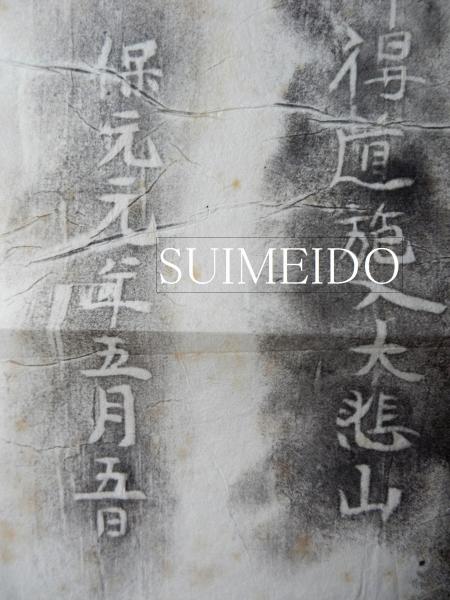 得道施入大悲山
保元元年五月五日
SUIMEIDO